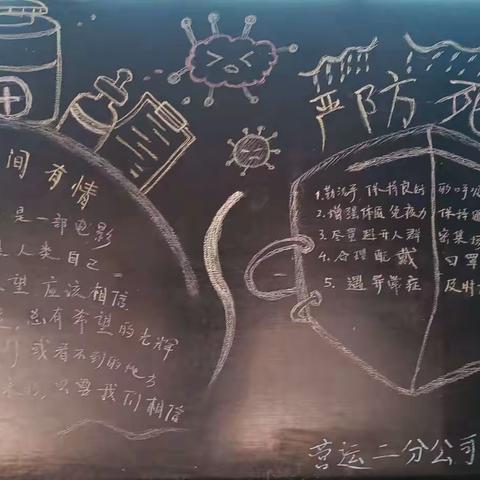 间有情
是一部电影
人类自己
望 应该相信
总有希望的光辉
或看不到的地方
只要我们相信
严防死
1.勤洗手 保持良好的呼吸
2.增强体质免疫力 保持
3.尽量避开人群密集场
4.合理配戴口罩
5.遇异常症 及时
营运二分公司